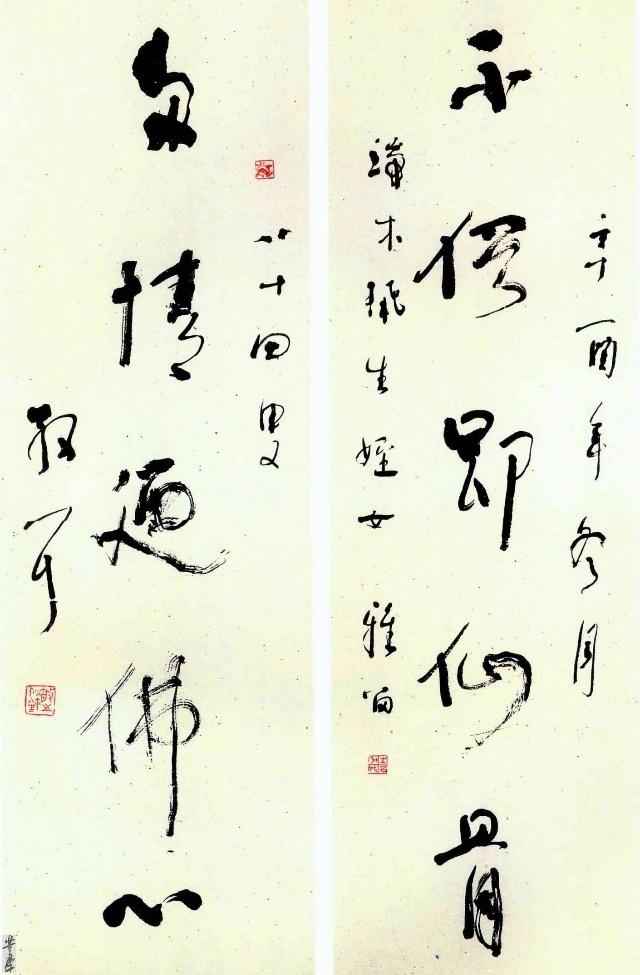 辛酉年冬月
不俗即仙骨
端木生姪女雅留
八十四叟
多情迺佛心
散耳